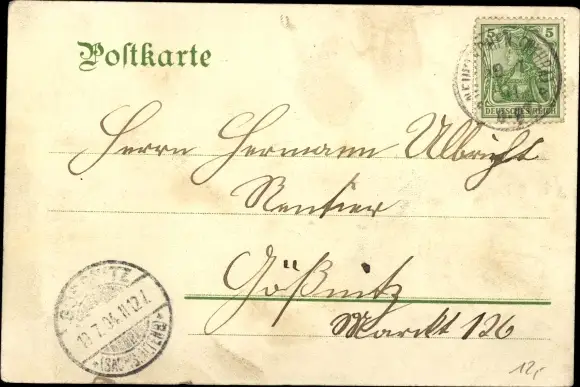 Postkarte
5 5
DEUTSCHES REICH
Herrn Hermann Ulbricht
Rentier
Gößnitz
Markt 126
GOESSNITZ
(SACHS. ALTENB.)
12,-